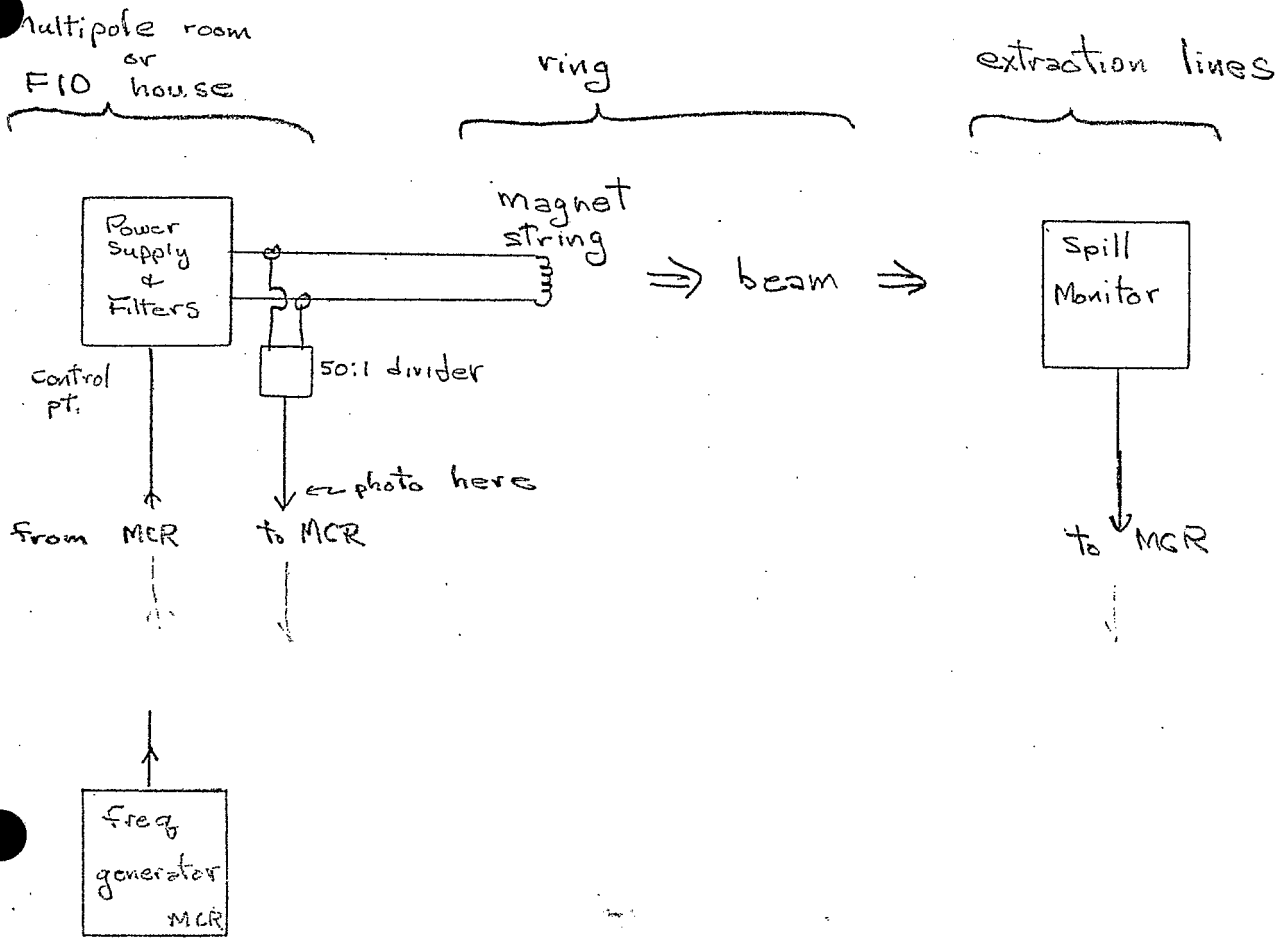 Multipole room
or
F10 house
ring
extraction lines
Power
Supply
&
Filters
magnet
string
⇒ beam ⇒
Spill
Monitor
50:1 divider
control
pt.
← photo here
from MCR
to MCR
to MCR
freq
generator
MCR